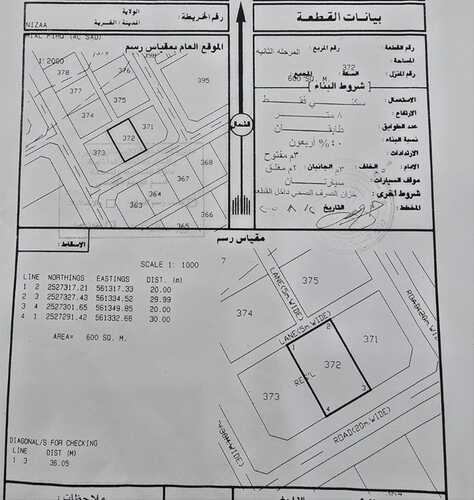 الولاية
رقم الخريطة:
NIZAA
المدينة / القرية
بيانات القطعة
الموقع العام بمقياس رسم
1:2000
رقم القطعة :
رقم المربع
المرحله الثانيه
المساحة :
372
600 SQ. M.
رقم المنزل :
شروط البناء
الاستعمال :
سكني فقط
الارتفاع :
٨ متر
عدد الطوابق
طابقان
نسبة البناء
٤٠% اربعون
الارتدادات
الامام
٥م
الخلف
٣م مفتوح
الجانبان
٢م مغلق
موقف السيارات
سيارتان
شروط اخرى
خزان الصرف الصحي داخل القطعه
المخطط
التاريخ
الشمال
378
377
376
375
374
395
371
372
373
368
367
366
365
364
363
الاسقاط:
مقياس رسم
SCALE 1: 1000
LINE NORTHINGS EASTINGS DIST. (m)
1 2 2527317.21 561317.33 20.00
2 3 2527327.43 561334.52 29.99
3 4 2527301.65 561349.85 20.00
4 1 2527291.42 561332.66 30.00
AREA= 600 SQ. M.
LANE(5m.WIDE)
375
ROAD(20m.WIDE)
LANE(5m.WIDE)
1
2
371
372
373
3
4
ROAD(20m.WIDE)
DIAGONAL/S FOR CHECKING
LINE DIST (M)
1 3 36.05
ملاحظات:
التاريخ